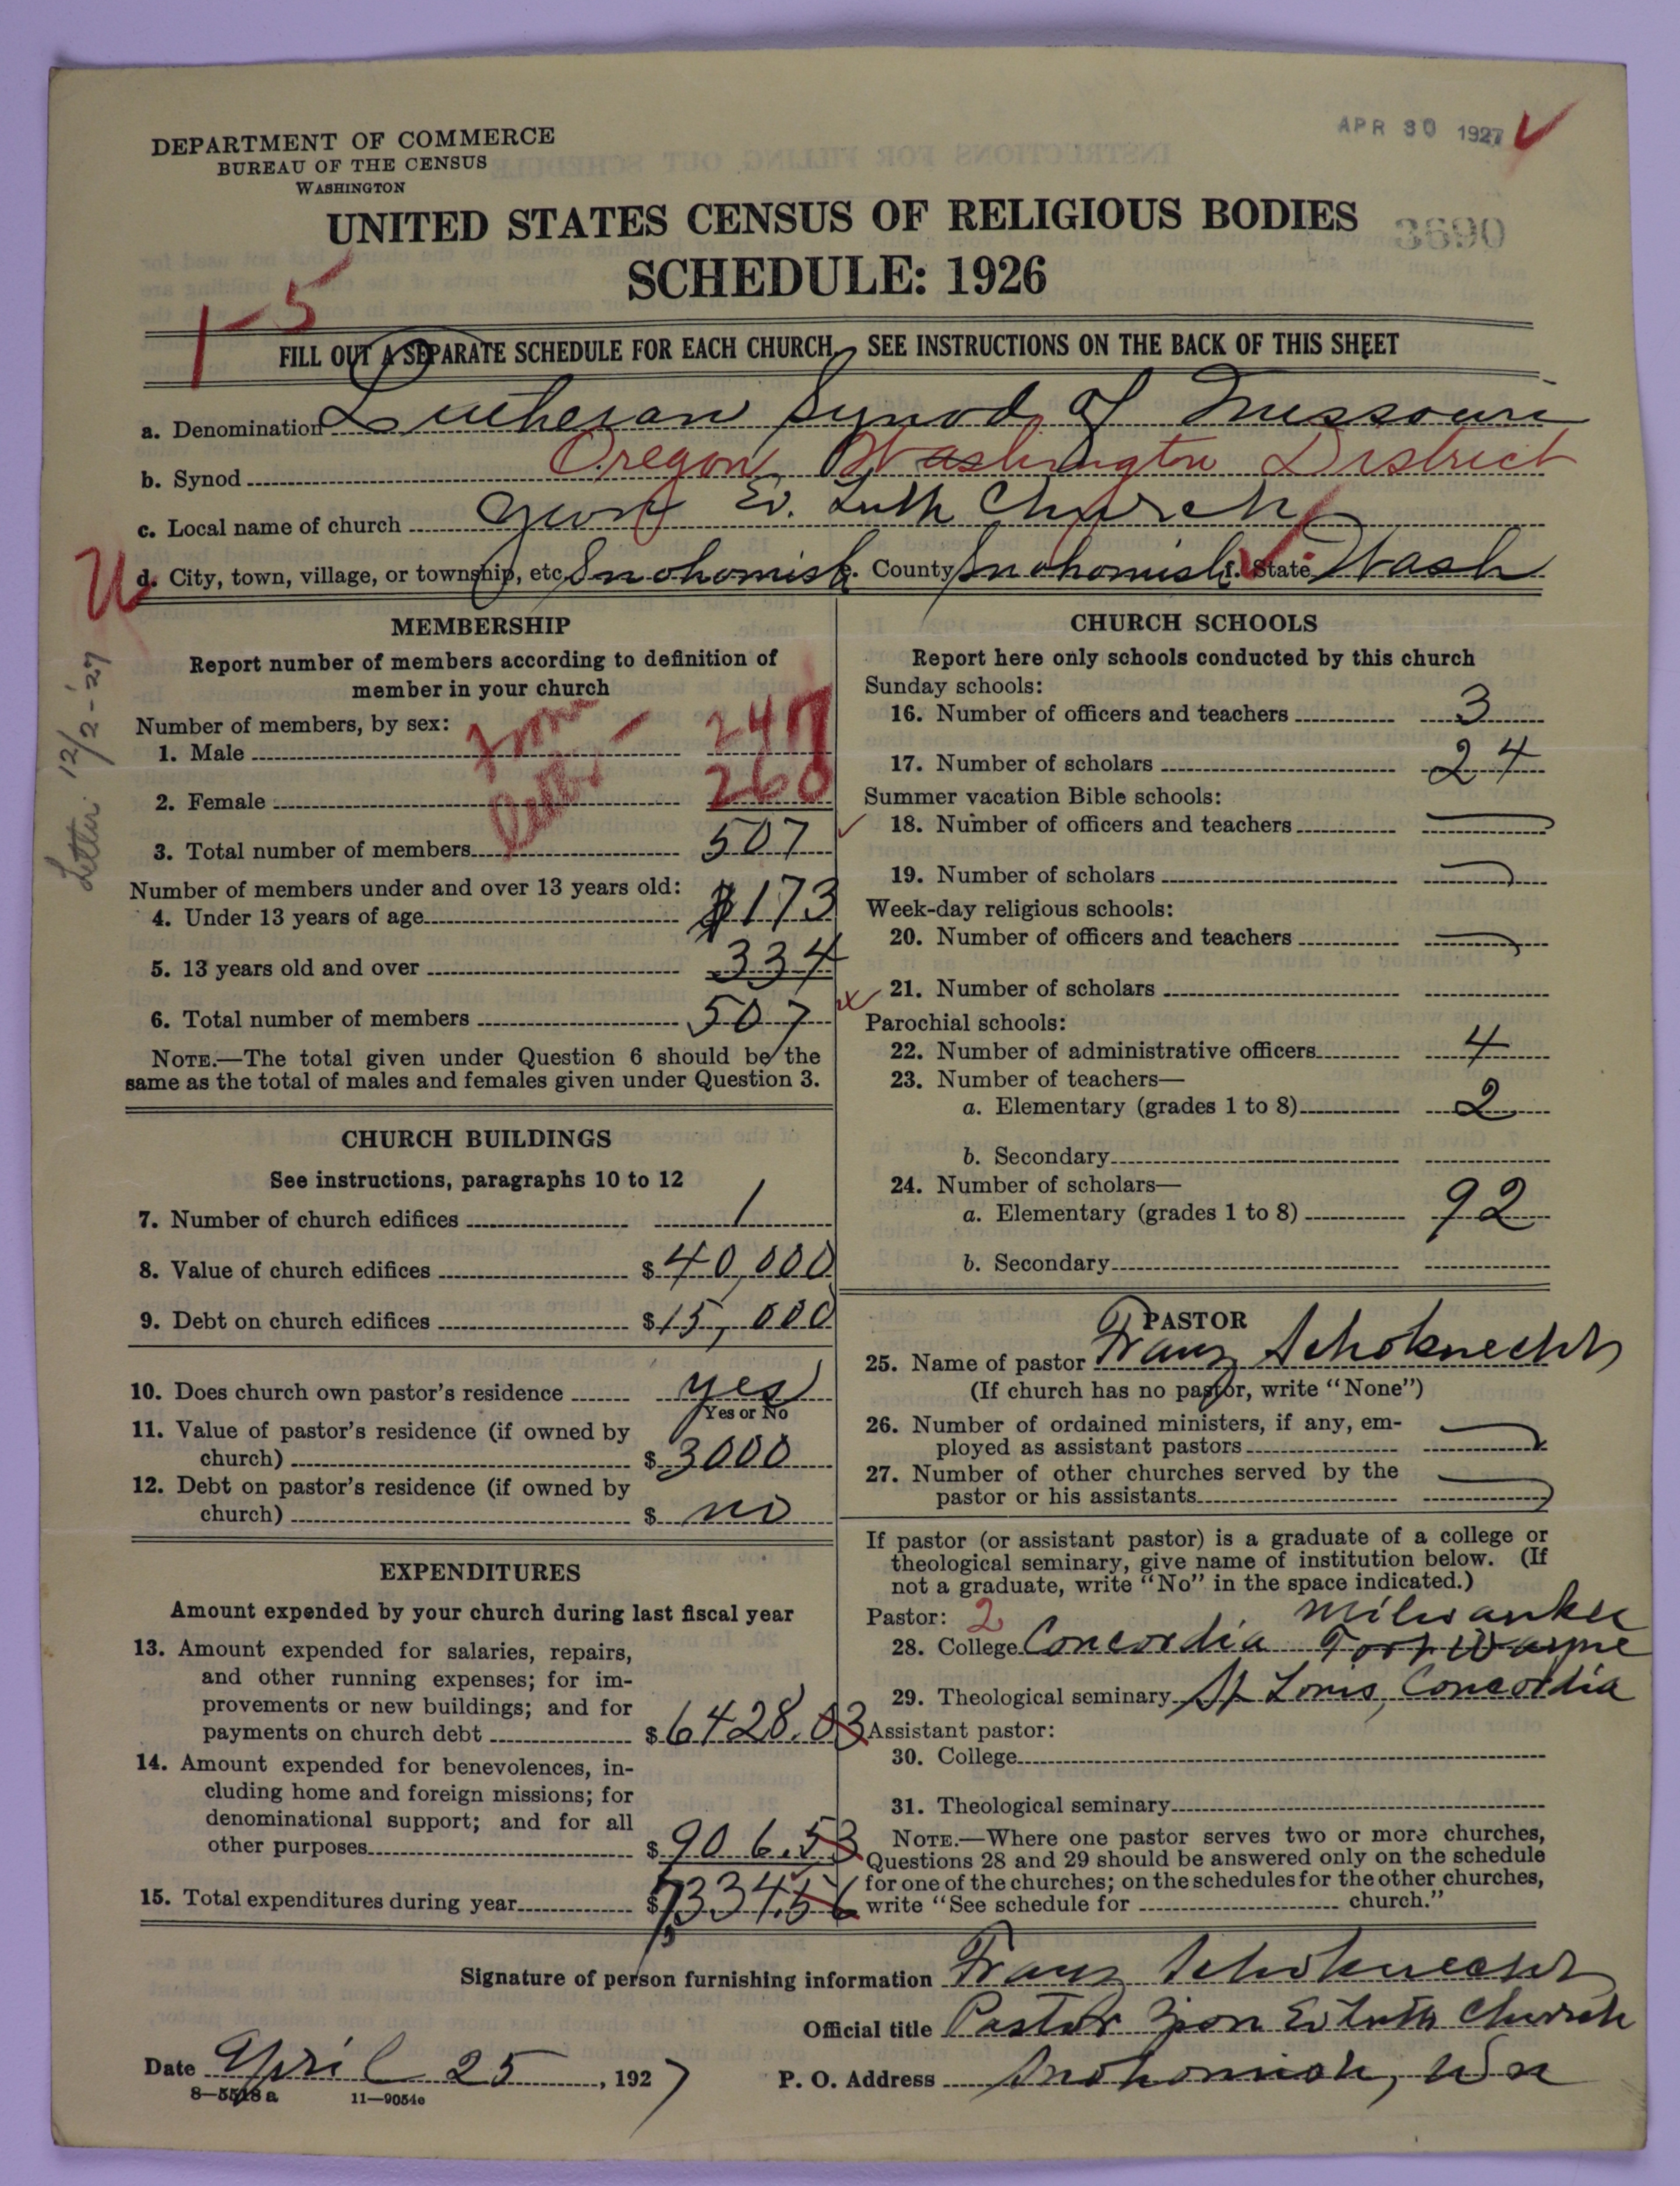 APR 30 1927
DEPARTMENT OF COMMERCE
BUREAU OF THE CENSUS
WASHINGTON
UNITED STATES CENSUS OF RELIGIOUS BODIES
3690
SCHEDULE: 1926
1-5
FILL OUT A SEPARATE SCHEDULE FOR EACH CHURCH. SEE INSTRUCTIONS ON THE BACK OF THIS SHEET
a. Denomination Lutheran Synod of Missouri
b. Synod Oregon Washington District
c. Local name of church Zion Ev. Luth Church
d. City, town, village, or township, etc. Snohomish e. County Snohomish f. State Wash
U
Letter 12/2-'27
MEMBERSHIP
Report number of members according to definition of
member in your church
Number of members, by sex:
from
letter
1. Male 247
2. Female 260
3. Total number of members 507
Number of members under and over 13 years old:
4. Under 13 years of age 173
5. 13 years old and over 334
6. Total number of members 507
NOTE.—The total given under Question 6 should be the
same as the total of males and females given under Question 3.
CHURCH BUILDINGS
See instructions, paragraphs 10 to 12
7. Number of church edifices 1
8. Value of church edifices $ 40,000
9. Debt on church edifices $ 15,000
10. Does church own pastor's residence yes
Yes or No
11. Value of pastor's residence (if owned by
church) $ 3000
12. Debt on pastor's residence (if owned by
church) $ no
EXPENDITURES
Amount expended by your church during last fiscal year
13. Amount expended for salaries, repairs,
and other running expenses; for im-
provements or new buildings; and for
payments on church debt $ 6428.03
14. Amount expended for benevolences, in-
cluding home and foreign missions; for
denominational support; and for all
other purposes $ 906.53
15. Total expenditures during year $ 7334.56
CHURCH SCHOOLS
Report here only schools conducted by this church
Sunday schools:
16. Number of officers and teachers 3
17. Number of scholars 24
Summer vacation Bible schools:
18. Number of officers and teachers
19. Number of scholars
Week-day religious schools:
20. Number of officers and teachers
21. Number of scholars
Parochial schools:
22. Number of administrative officers 4
23. Number of teachers—
a. Elementary (grades 1 to 8) 2
b. Secondary
24. Number of scholars—
a. Elementary (grades 1 to 8) 92
b. Secondary
PASTOR
25. Name of pastor Franz Schoknecht
(If church has no pastor, write "None")
26. Number of ordained ministers, if any, em-
ployed as assistant pastors
27. Number of other churches served by the
pastor or his assistants
If pastor (or assistant pastor) is a graduate of a college or
theological seminary, give name of institution below. (If
not a graduate, write "No" in the space indicated.)
Pastor: 2 Milwaukee
28. College Concordia Fort Wayne
29. Theological seminary St Louis, Concordia
Assistant pastor:
30. College
31. Theological seminary
NOTE.—Where one pastor serves two or more churches,
Questions 28 and 29 should be answered only on the schedule
for one of the churches; on the schedules for the other churches,
write "See schedule for church."
Signature of person furnishing information Franz Schoknecht
Official title Pastor Zion Ev Luth Church
Date April 25, 1927 P. O. Address Snohomish, Wn
8—5518a 11—9054c